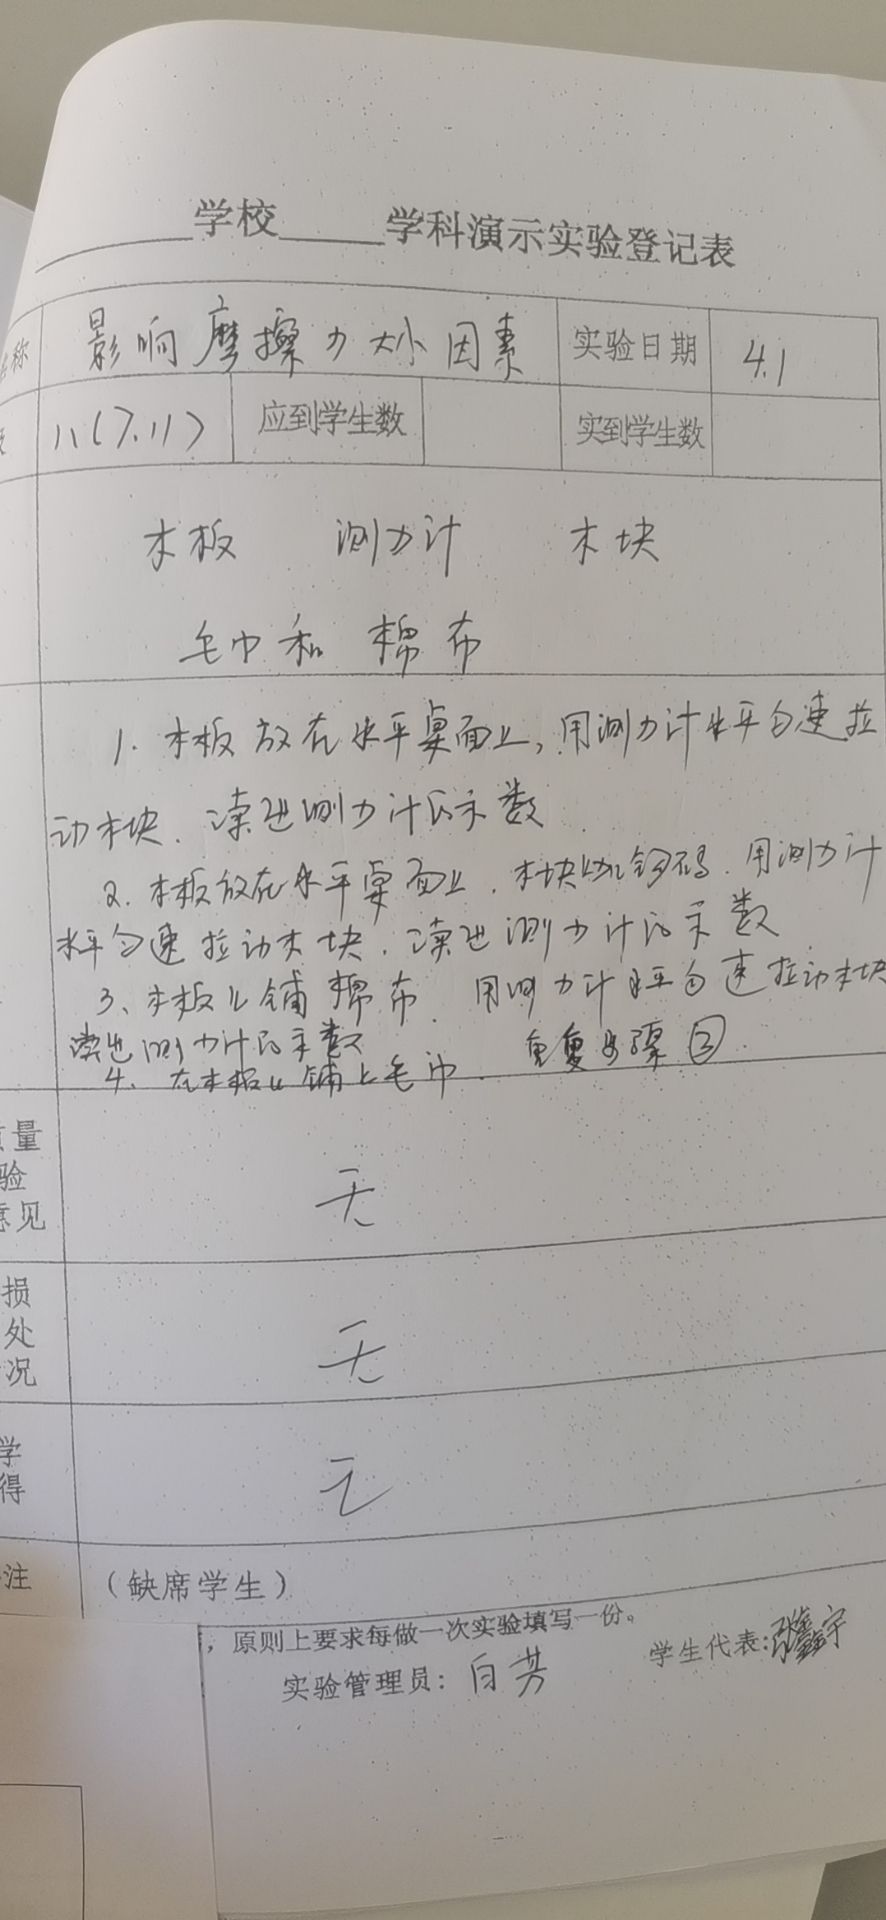 学校 学科演示实验登记表
称 影响摩擦力大小因素 实验日期 4.1
八(7.11) 应到学生数 实到学生数
木板 测力计 木块
毛巾和棉布
1. 木板放在水平桌面上,用测力计水平匀速拉
动木块.读出测力计的示数
2. 木板放在水平桌面上.木块上加钩码.用测力计
水平匀速拉动木块.读出测力计的示数
3、木板上铺棉布.用测力计水平匀速拉动木块
读出测力计的示数
4. 在木板上铺上毛巾.重复步骤③.
量
验
意见
无
损
处
况
无
学
得
无
注 (缺席学生)
,原则上要求每做一次实验填写一份。
实验管理员:白芳 学生代表:张鑫宇